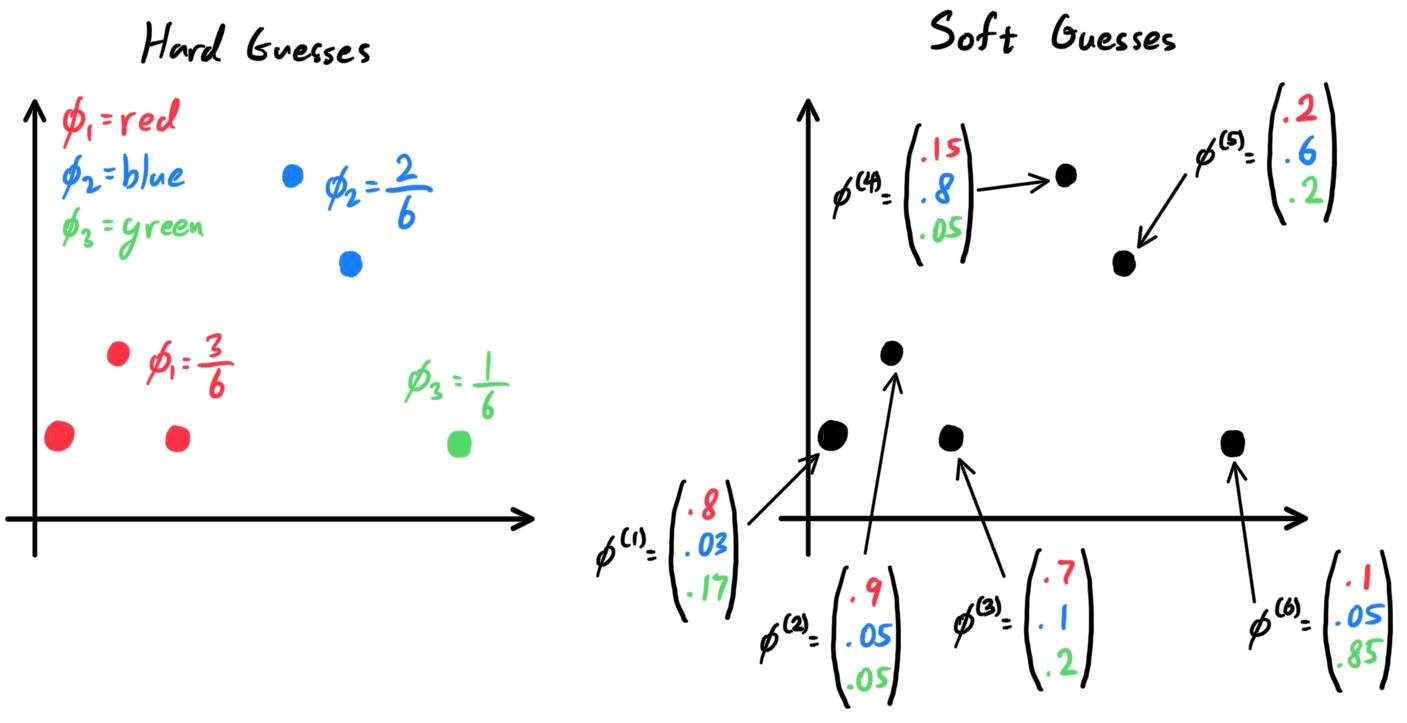 Hard Guesses
ϕ₁ = red
ϕ₂ = blue
ϕ₃ = green
ϕ₂ = 2/6
ϕ₁ = 3/6
ϕ₃ = 1/6
Soft Guesses
ϕ⁽⁴⁾ = (.15 .8 .05)
ϕ⁽⁵⁾ = (.2 .6 .2)
ϕ⁽¹⁾ = (.8 .03 .17)
ϕ⁽²⁾ = (.9 .05 .05)
ϕ⁽³⁾ = (.7 .1 .2)
ϕ⁽⁶⁾ = (.1 .05 .85)